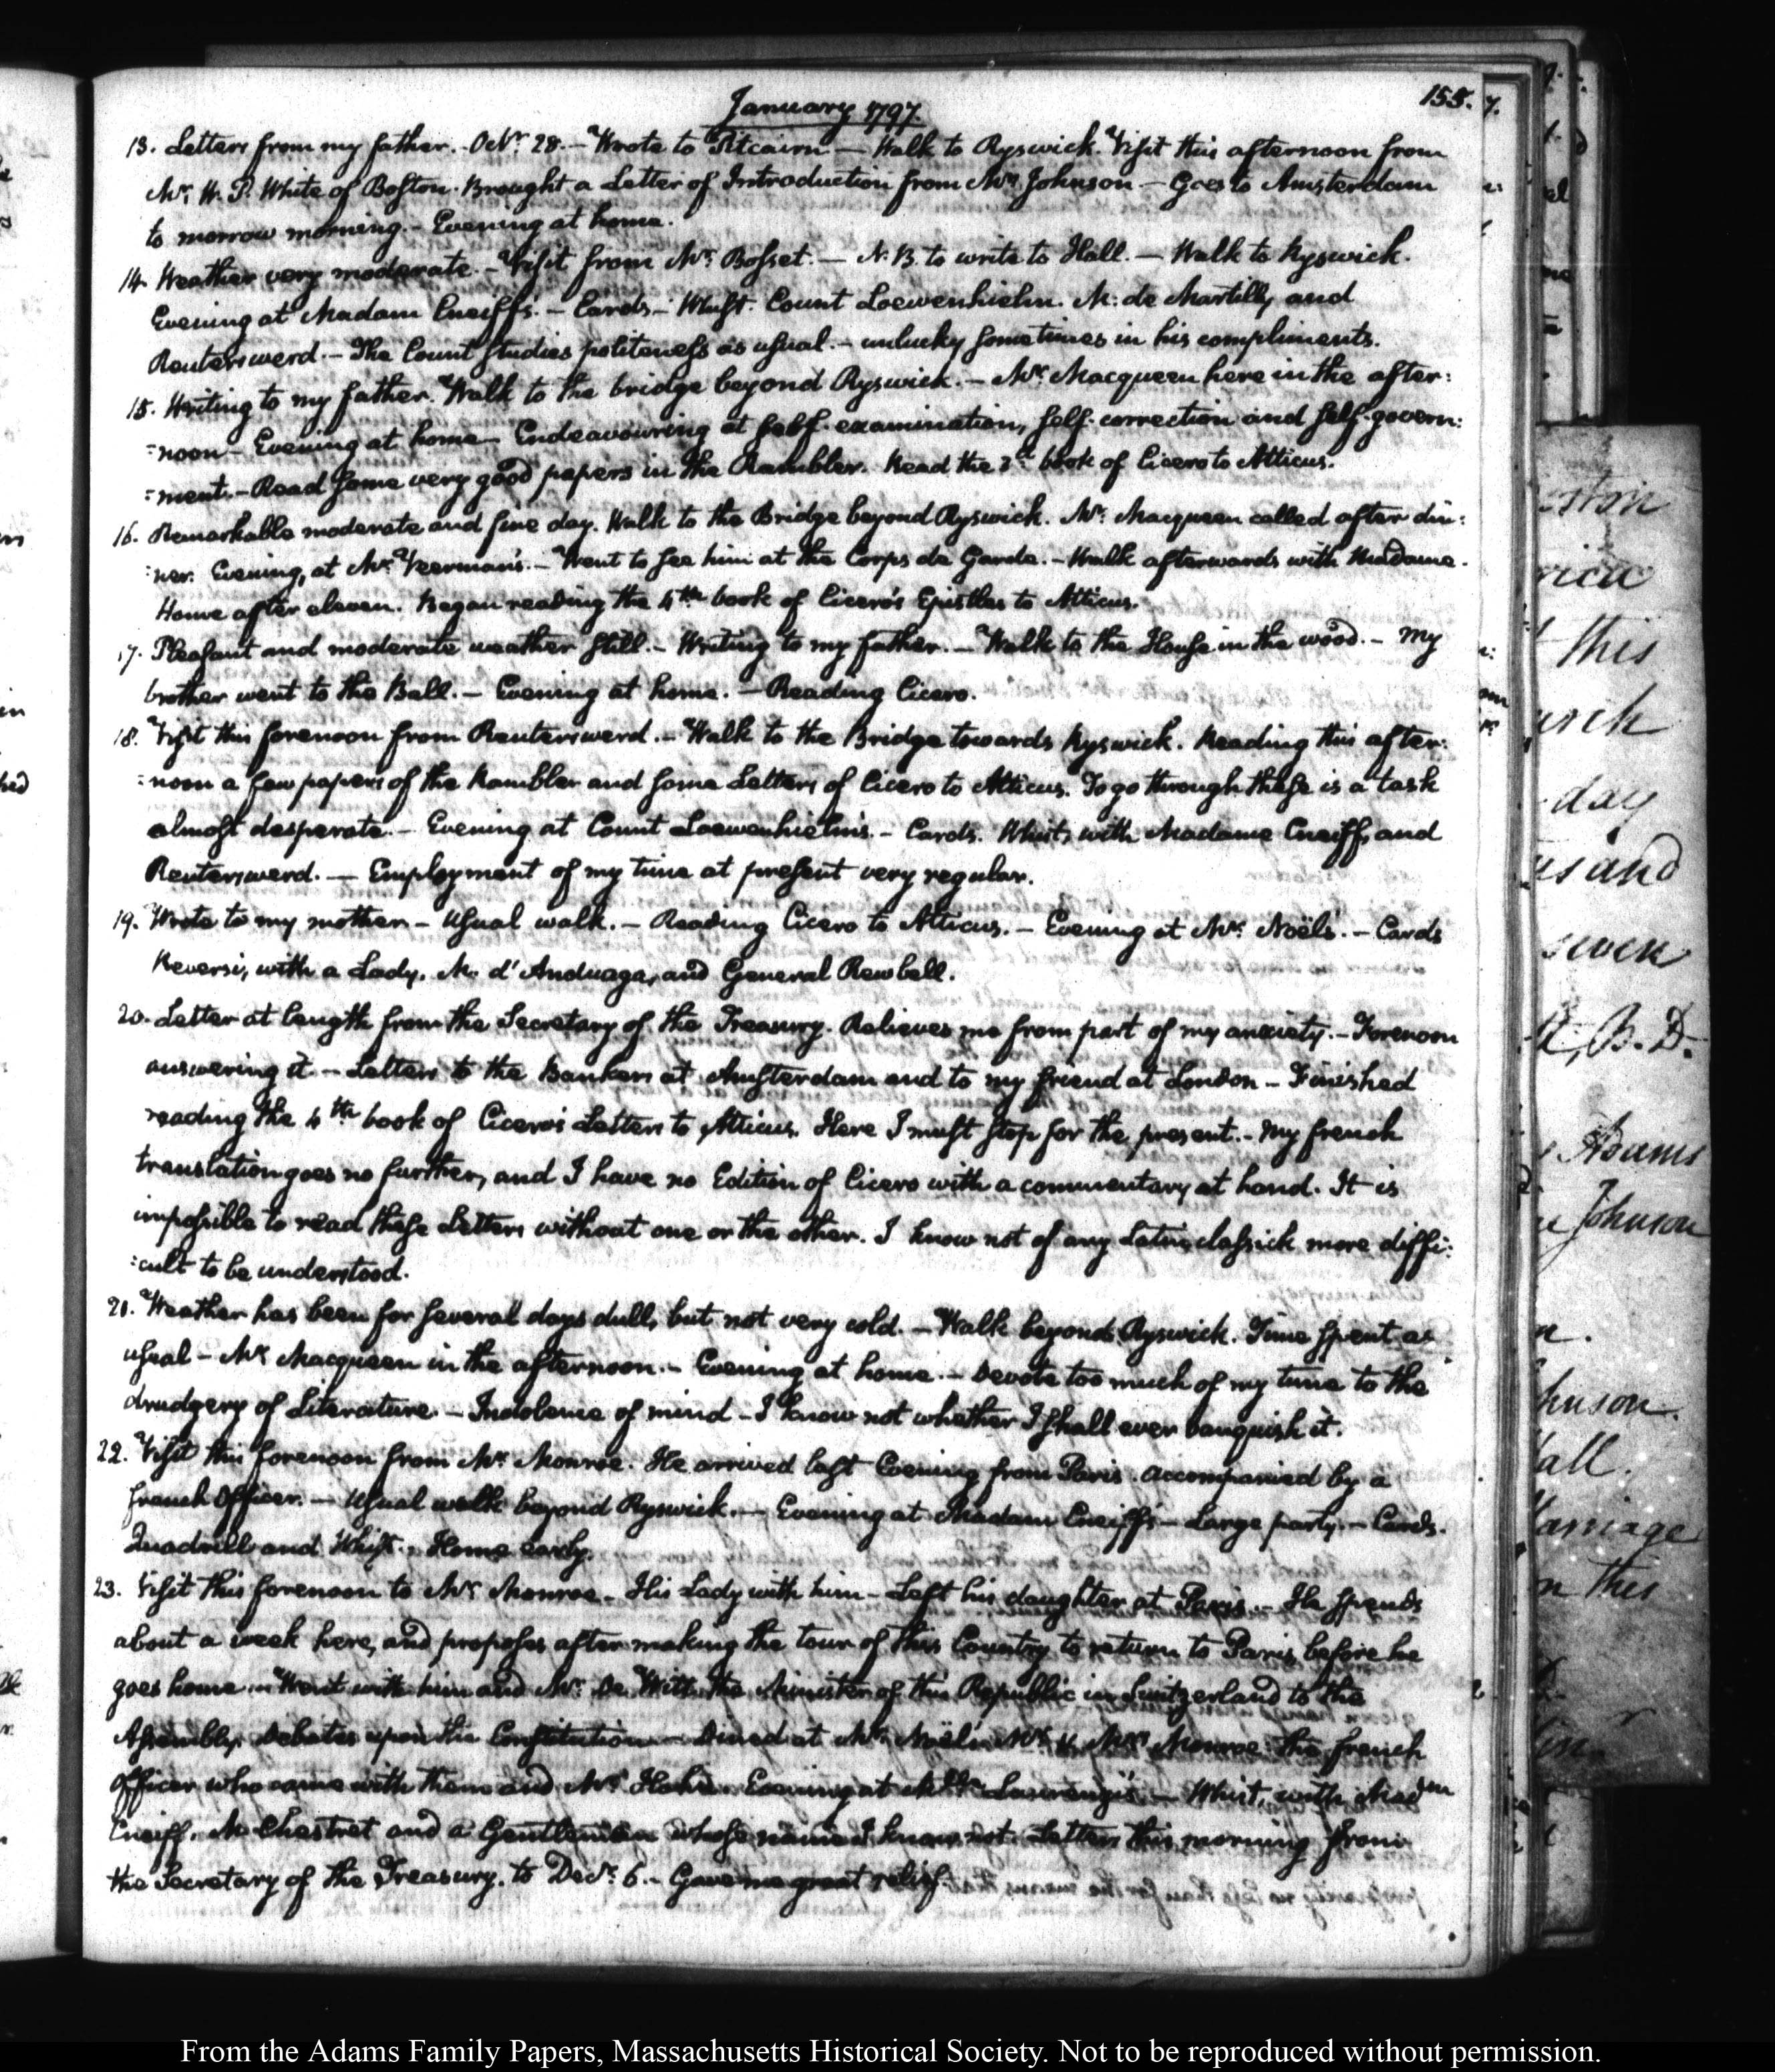 155.
January 1797.
13. Letters from my father. Octr. 28. — Wrote to Pitcairn — Walk to Ryswick. Visit this afternoon from
Mr. W. P. White of Boston. Brought a Letter of Introduction from Mrs. Johnson — Goes to Amsterdam
to morrow morning. — Evening at home.
14. Weather very moderate. — Visit from Mr. Bosset. — N.B. to write to Hall. — Walk to Ryswick.
Evening at Madam Cneiff's. — Cards — Whist. Count Loewenhielm. M: de Martilly, and
Reuterswerd. — The Count studies politeness as usual. — unlucky sometimes in his compliments.
15. Writing to my father. Walk to the bridge beyond Ryswick. — Mr. Macqueen here in the after:
=noon — Evening at home — Endeavouring at self-examination, self-correction and self-govern:
=ment. — Read some very good papers in the Rambler. Read the 3d. book of Cicero to Atticus.
16. Remarkable moderate and fine day. Walk to the Bridge beyond Ryswick. Mr. Macqueen called after din:
:ner. Evening, at Mr. Veerman's. — Went to see him at the Corps de Garde. — Walk afterwards with Madame.
Home after eleven. Began reading the 4th book of Cicero's Epistles to Atticus.
17. Pleasant and moderate weather still. — Writing to my father. — Walk to the House in the wood. — My
brother went to the Ball. — Evening at home. — Reading Cicero.
18. Visit this forenoon from Reuterswerd. — Walk to the Bridge towards Ryswick. Reading this after:
=noon a few papers of the Rambler and some Letters of Cicero to Atticus. To go through these is a task
almost desperate. — Evening at Count Loewenhielm's. — Cards. Whist, with Madame Cneiff, and
Reuterswerd. — Employment of my time at present very regular.
19. Wrote to my mother — Usual walk. — Reading Cicero to Atticus. — Evening at Mr. Noël's. — Cards
Reversi, with a Lady, M. d'Anduaga, and General Rewbell.
20. Letter at length from the Secretary of the Treasury. Relieves me from part of my anxiety. — Forenoon
answering it. — Letters to the Bankers at Amsterdam and to my friend at London — Finished
reading the 4th book of Cicero's Letters to Atticus. Here I must stop for the present. — My french
translation goes no further, and I have no Edition of Cicero with a commentary at hand. It is
impossible to read these Letters without one or the other. I know not of any Latin classick more diffi:
:cult to be understood.
21. Weather has been for several days dull, but not very cold. — Walk beyond Ryswick. Time spent as
usual — Mr Macqueen in the afternoon. — Evening at home. — Devote too much of my time to the
drudgery of Literature. — Indolence of mind — I know not whether I shall ever vanquish it.
22. Visit this forenoon from Mr. Monroe. He arrived last Evening from Paris. accompanied by a
french Officer. — Usual walk beyond Ryswick. — Evening at Madam Cneiff's — Large party. — Cards.
Quadrille and Whist. Home early.
23. Visit this forenoon to Mr. Monroe — His Lady with him — Left his daughter at Paris. — He spends
about a week here, and proposes after making the tour of this Country to return to Paris, before he
goes home — Went with him and Mr. De Witt, the Minister of this Republic in Switzerland to the
Assembly. Debates upon the Constitution — Dined at Mr. Noël's Mr. & Mrs. Monroe the french
Officer who came with them and Mr. Hahn. Evening at — Whist, with Madm
Cneiff. M. Chestret and a Gentleman whose name I know not. Letters this morning from
the Secretary of the Treasury. to Decr. 6. — Gave me great relief.
From the Adams Family Papers, Massachusetts Historical Society. Not to be reproduced without permission.